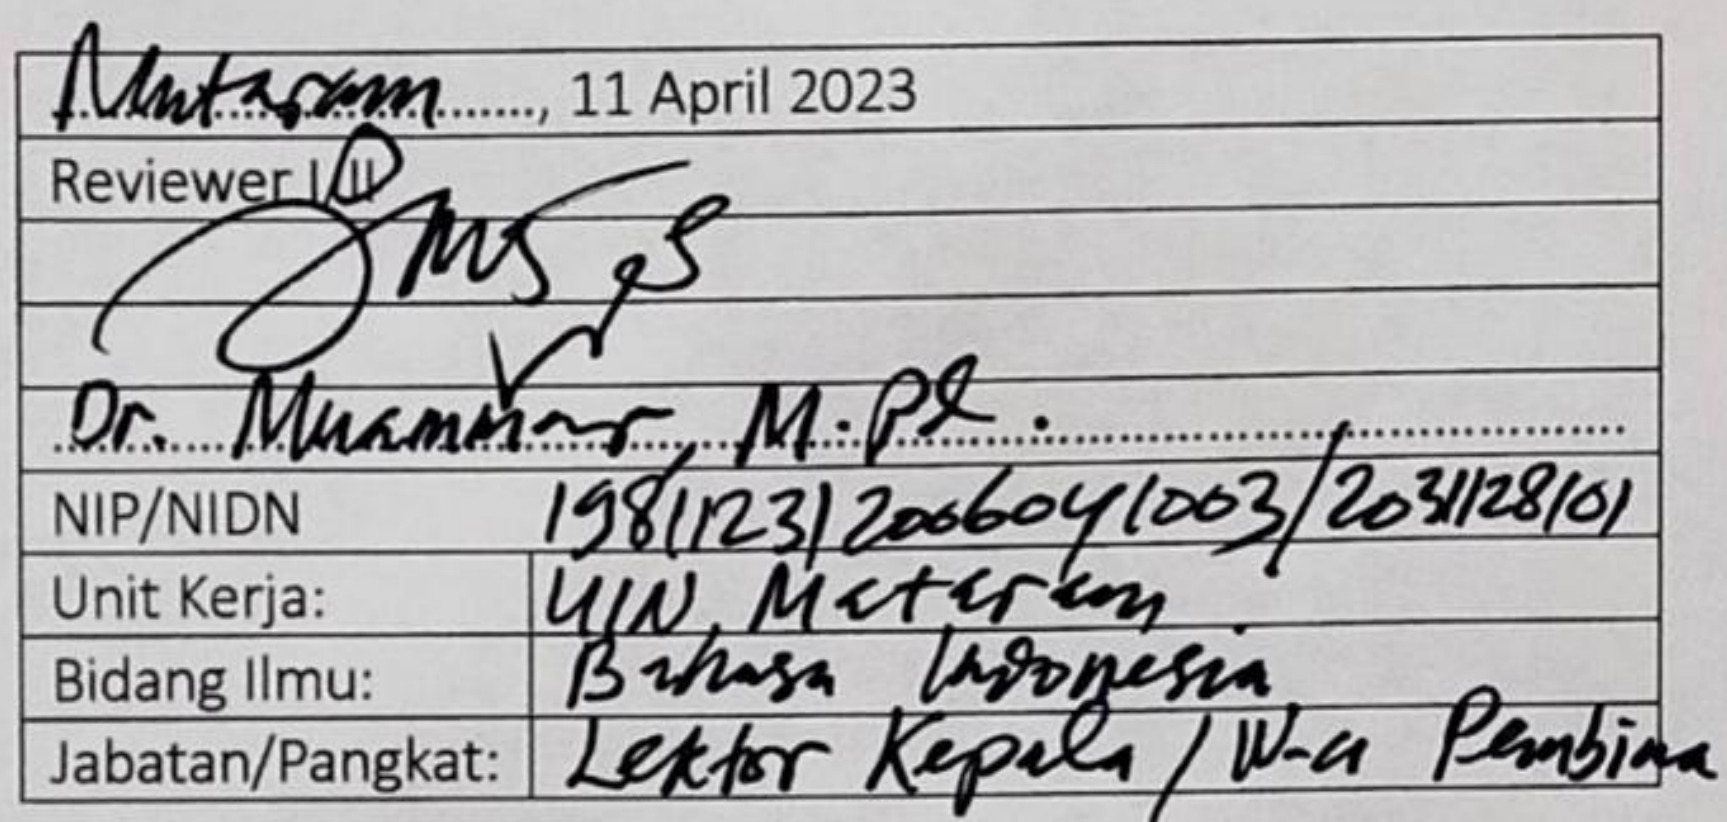 Mataram, 11 April 2023
Reviewer I/II
Dr. Muammar, M.Pd.
NIP/NIDN 198112312006041003/2031128101
Unit Kerja: UIN Mataram
Bidang Ilmu: Bahasa Indonesia
Jabatan/Pangkat: Lektor Kepala / IV-a Pembina